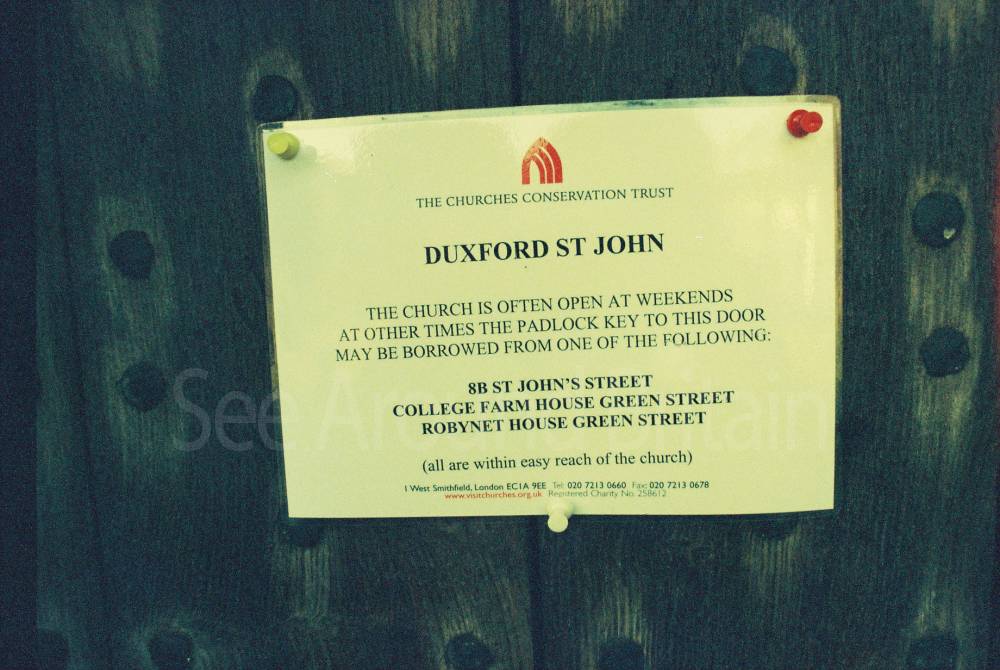 THE CHURCHES CONSERVATION TRUST
DUXFORD ST JOHN
THE CHURCH IS OFTEN OPEN AT WEEKENDS
AT OTHER TIMES THE PADLOCK KEY TO THIS DOOR
MAY BE BORROWED FROM ONE OF THE FOLLOWING:
8B ST JOHN'S STREET
COLLEGE FARM HOUSE GREEN STREET
ROBYNET HOUSE GREEN STREET
(all are within easy reach of the church)
1 West Smithfield, London EC1A 9EE Tel: 020 7213 0660 Fax: 020 7213 0678
www.visitchurches.org.uk Registered Charity No. 258612
See Around Britain